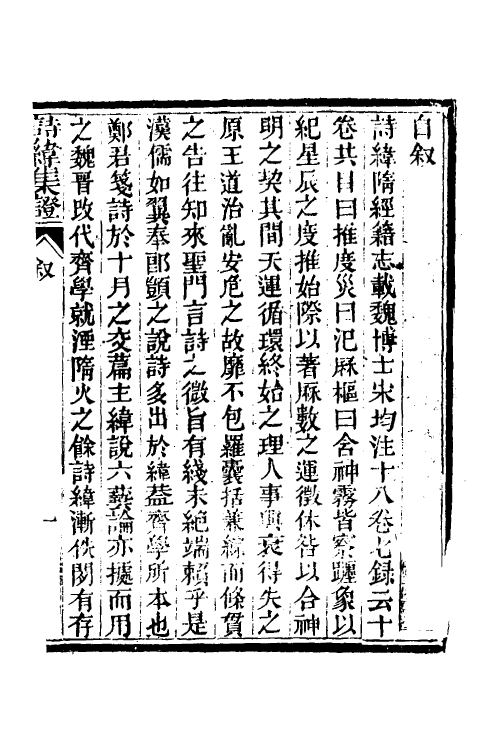 自叙
詩緯隋經籍志載魏博士宋均注十八卷七録云十
卷其目曰推度災曰氾厤樞曰含神霧皆察躔象以
紀星辰之度推始際以著厤數之運徵休咎以合神
明之契其間天運循環終始之理人事興衰得失之
原王道治亂安危之故靡不包羅囊括兼綜而條貫
之告往知來聖門言詩之微旨有綫未絶端賴乎是
漢儒如翼奉郎顗之說詩多出於緯葢齊學所本也
鄭君箋詩於十月之交篇主緯說六蓺論亦據而用
之魏晋改代齊學就湮隋火之餘詩緯漸佚閒有存
詩緯集證
叙
一